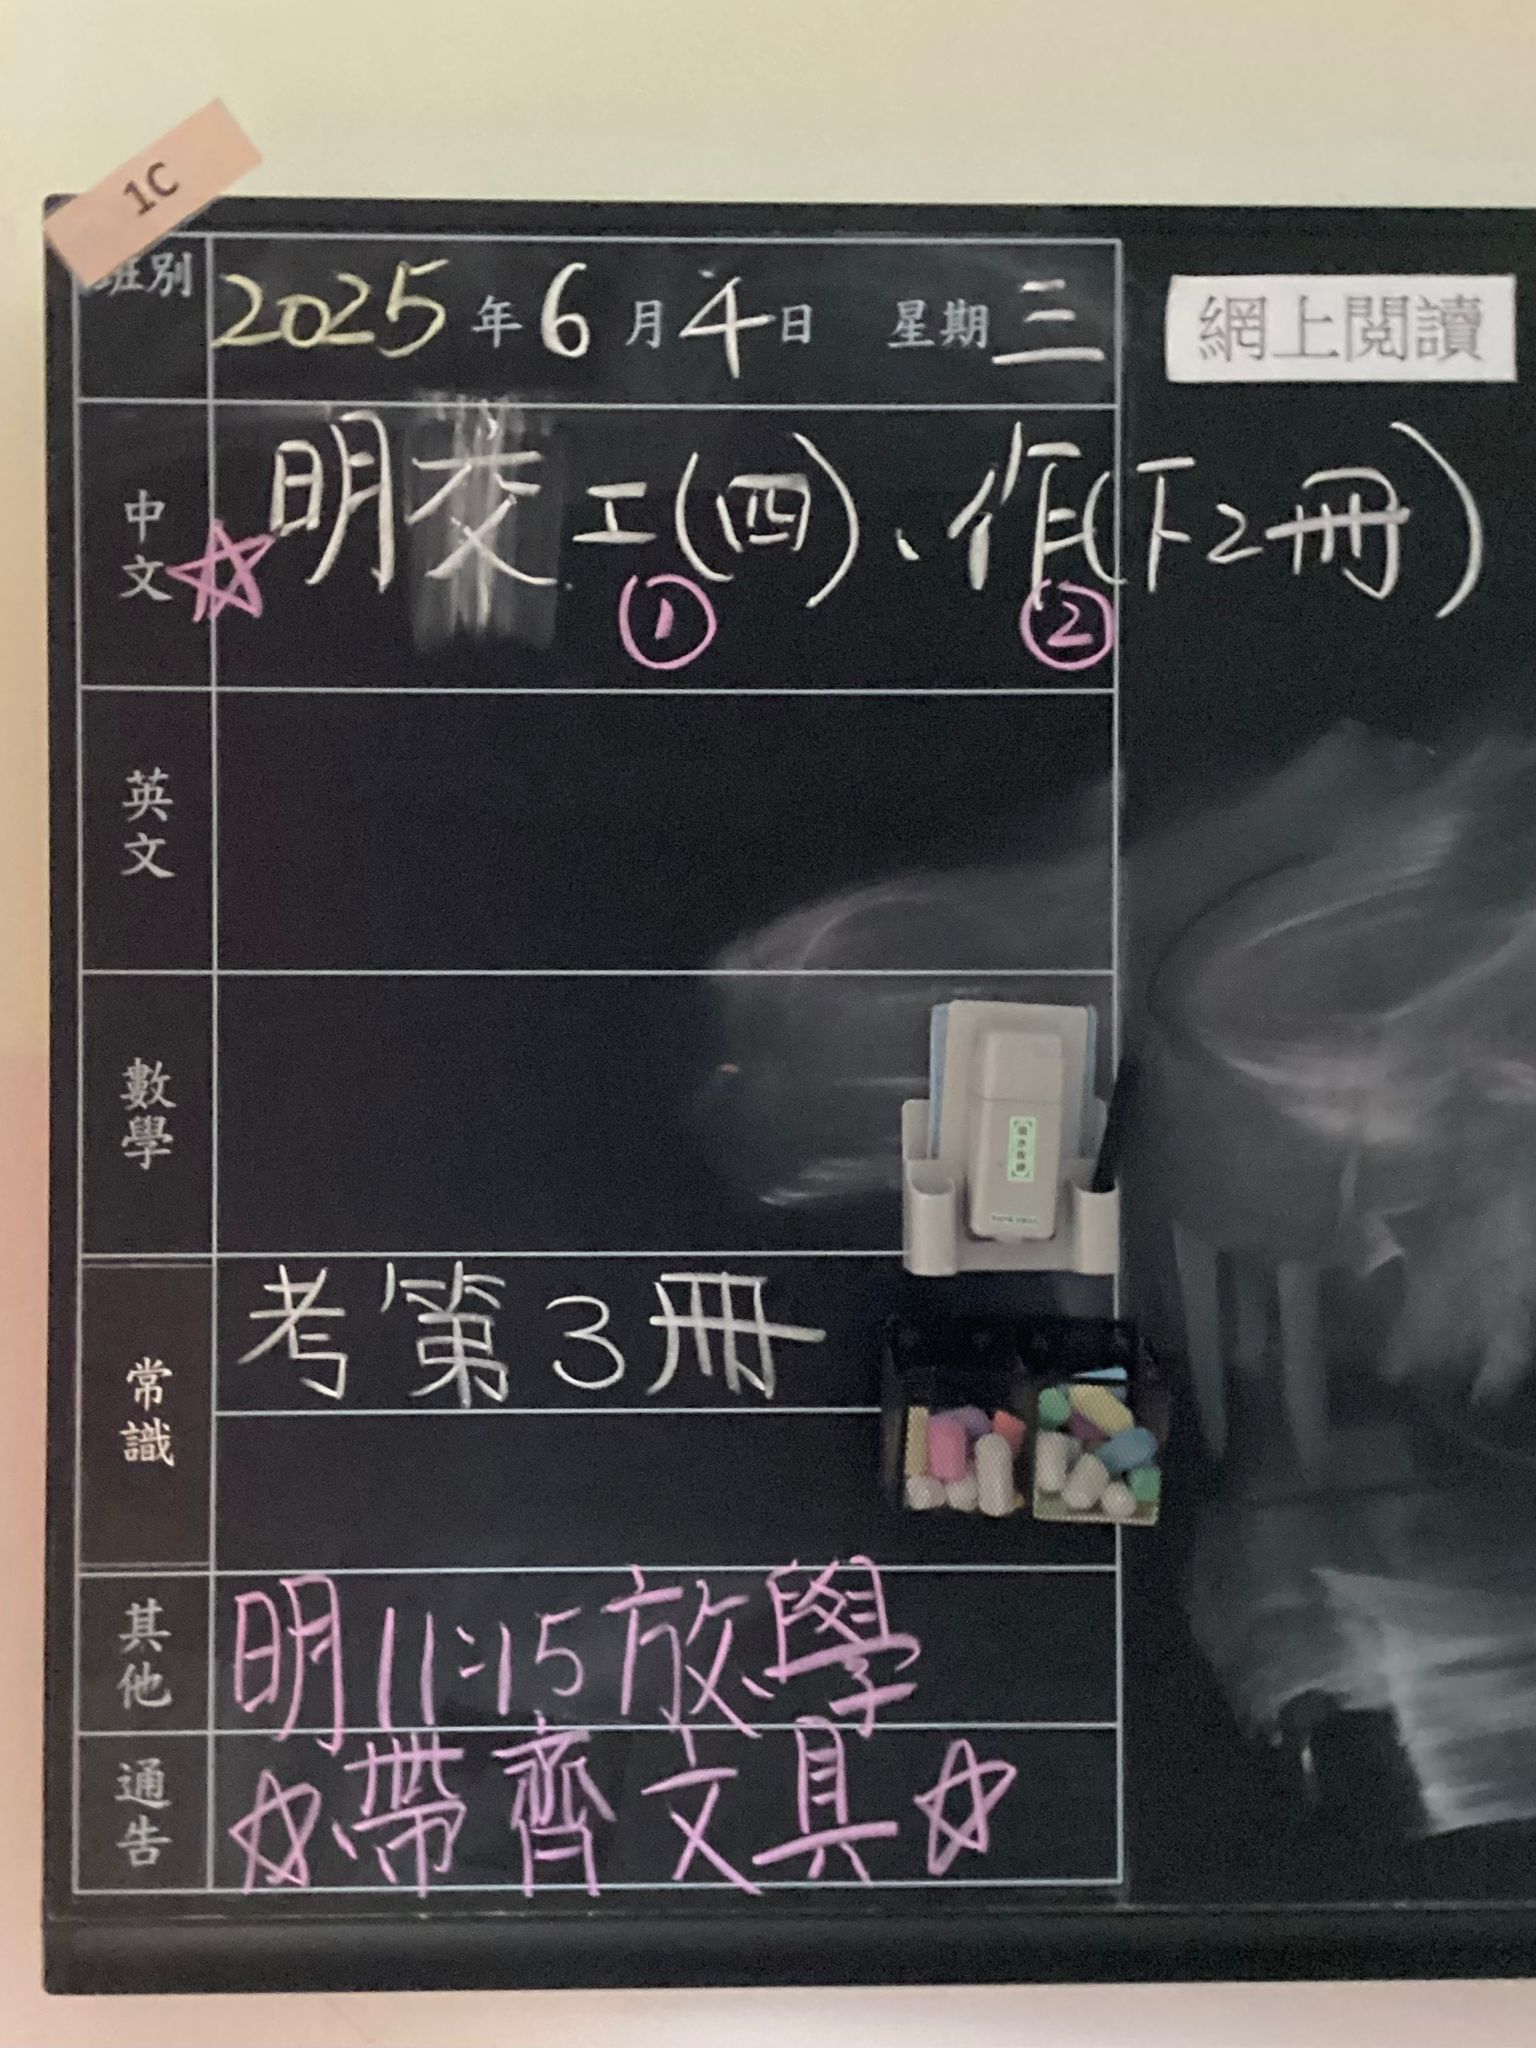 1C
班別
2025年6月4日 星期三
網上閱讀
中文
☆明交工(四)、作(下2冊)
① ②
英文
數學
常識
考第3冊
其他
明11:15放學
通告
☆帶齊文具☆